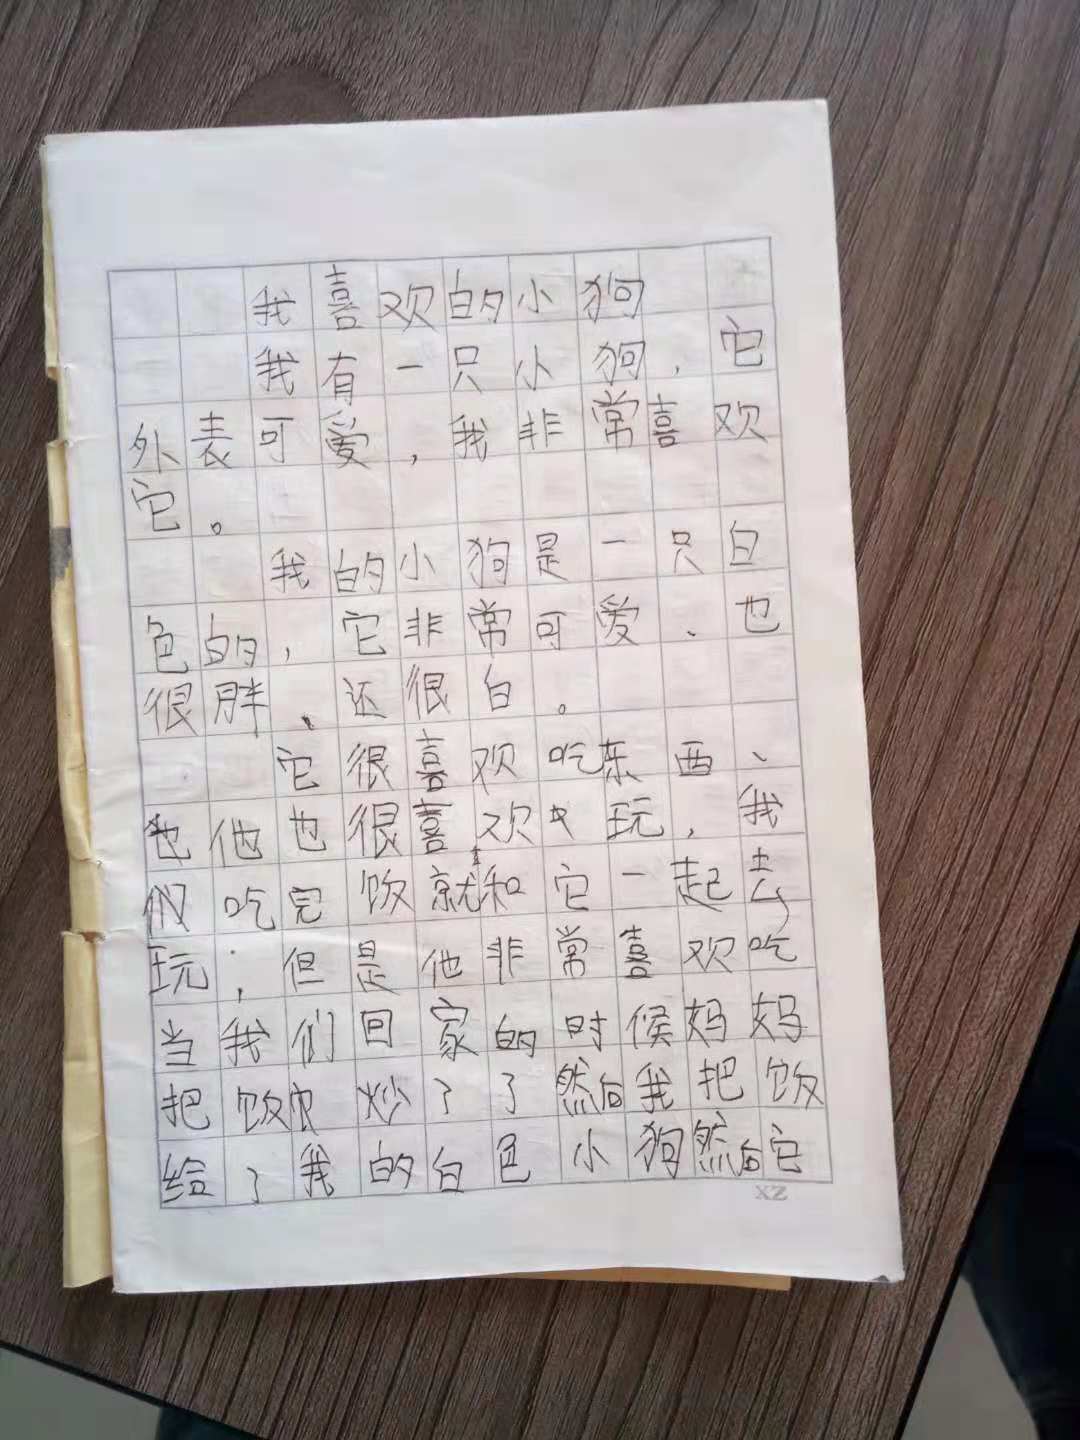 我喜欢的小狗
我有一只小狗，它
外表可爱，我非常喜欢
它。
我的小狗是一只白
色的，它非常可爱、也
很胖、还很白。
它很喜欢吃东西、
他也很喜欢玩，我
们吃完饭就和它一起去
玩；但是他非常喜欢吃
当我们回家的时候妈妈
把饭炒了了然后我把饭
给了我的白色小狗然后它
XZ